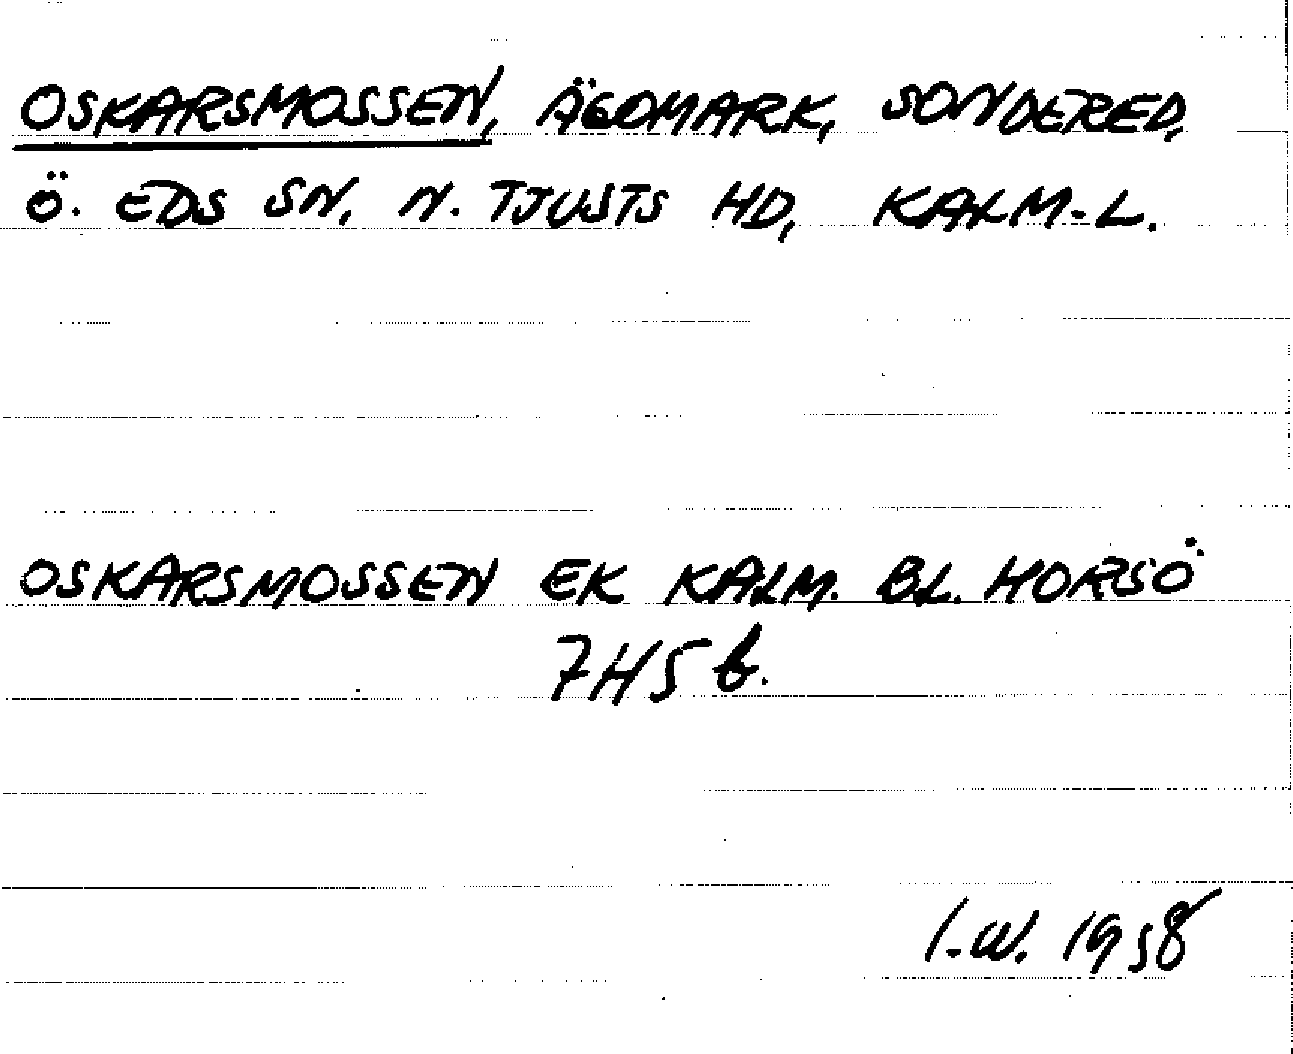 OSKARSMOSSEN, ÄGOMARK, SONDERED,
Ö. EDS SN, N. TJUSTS HD, KALM-L.
OSKARSMOSSEN EK KALM. BL. HORSÖ
7H5b.
I.W. 1958